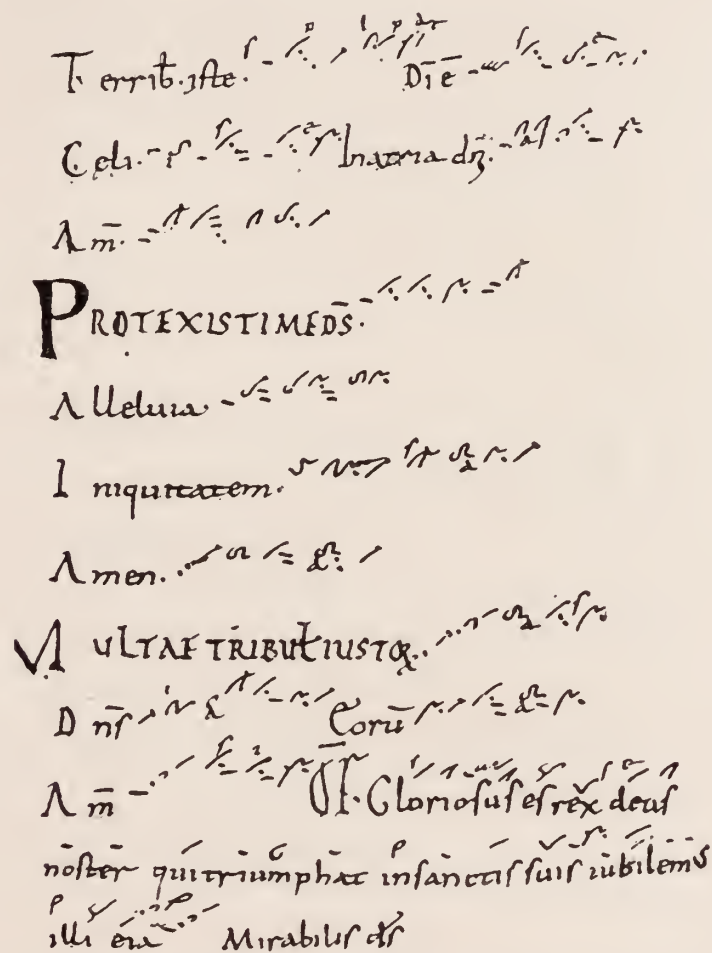 Terrib. iste. Di e
Celi. In atria dn̄i.
Am̄.
PROTEXISTI ME DS̄.
Alleluia
Iniquitatem.
Amen.
MULTAE TRIBUL IUSTOꝜ.
Dn̄s Eorū
Am̄ Gloriosus es rex deus
noster qui triumphat in sanctis suis iubilemus
illi eia Mirabilis ds